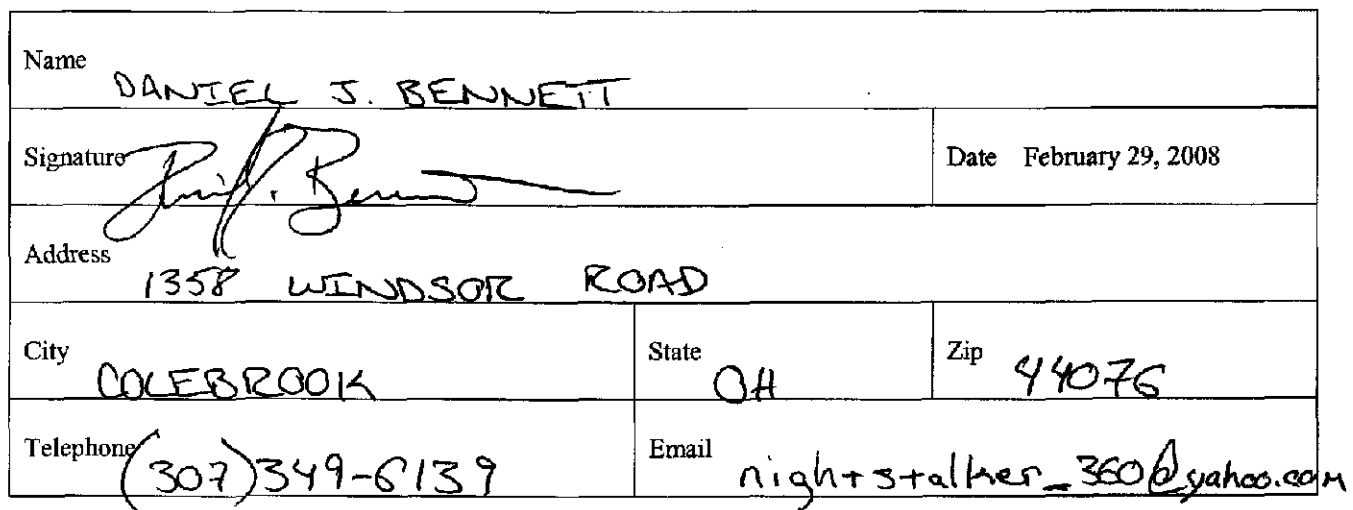 Name DANIEL J. BENNETT
Signature Daniel J. Bennett Date February 29, 2008
Address 1358 WINDSOR ROAD
City COLEBROOK State OH Zip 44076
Telephone (307)349-6139 Email nightstalker_360@yahoo.com